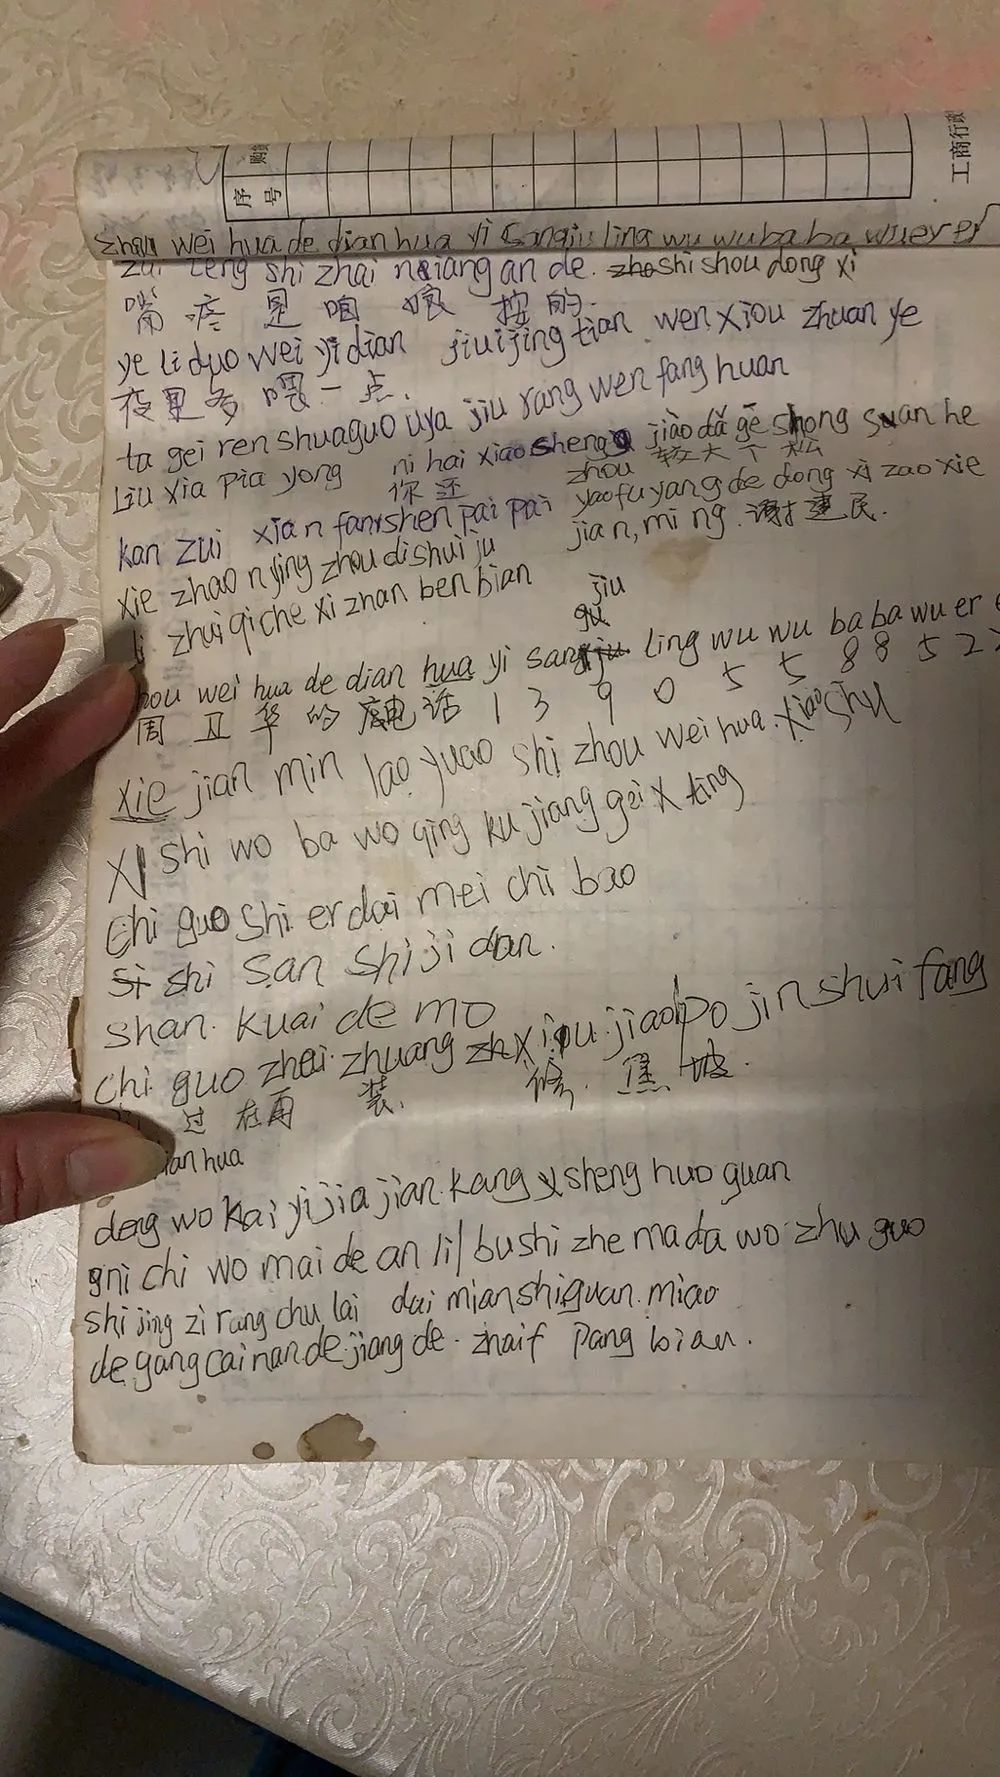 工商行政
序号
wei hua de dian hua yi ling wu wu ba ba wu er er
shi zhai an de. shi shou dong xi
疼 是 咱 娘 按 的.
ye li duo wei yi dian jiu jing tian wen xiou zhuan ye
夜里多 喂 一 点.
ta gei ren shua guo uya jiu rang wen fang huan
Liu xia pia yong ni hai xiao sheng jiào dǎ gè shong suan he
你 还 zhou 较大个松
kan zui xian fan shen pai pai yao fu yang de dong xi zao xie
xie zhao n ying zhou di shui ju jian, mi ng. 谢建民.
li zhui qi che xi zhan ben bian jiu
hou wei hua de dian hua yi san ling wu wu ba ba wu er
周 卫 华 的 电话 1 3 9 0 5 5 8 8 5 2 2
xie jian min lao yuao shi zhou wei hua. xiao shu
XI shi wo ba wo qing ku jiang gei x ting
Chi guo shi er dai mei chi bao
si shi san shi ji dan.
shan. kuai de mo
chi guo zhai zhuang zh xiou jiao po jin shui fang
过 在再 装. 修. 焦 坡.
ian hua
deng wo kai yi jia jian kang y sheng huo guan
gni chi wo mai de an li bu shi zhe ma da wo zhu guo
shi jing zi rang chu lai dai mian shi guan miao
de gang cai nan de jiang de. zhai f pang bian.